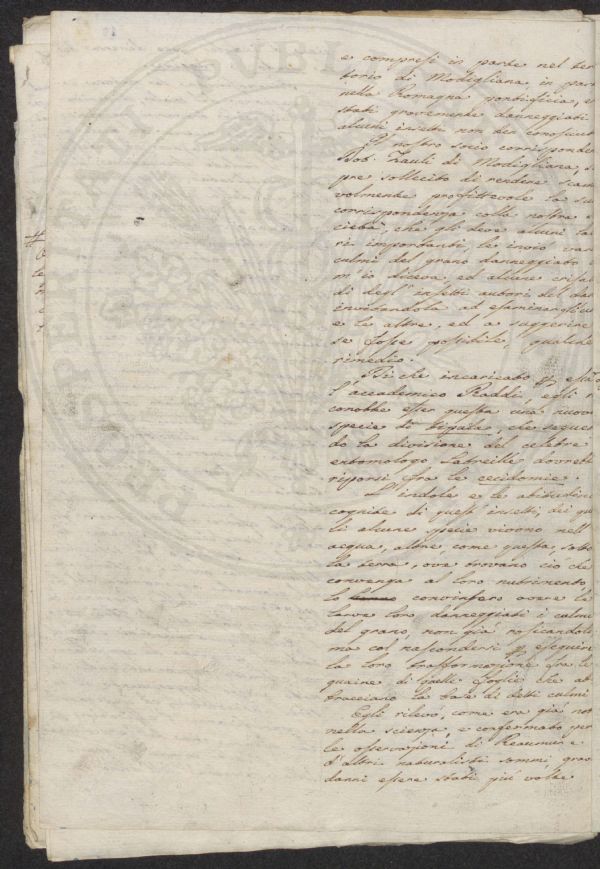 e compresi in parte nel ter
torio di Modigliana, in par
nella Romagna pontificia, e
stati gravemente danneggiati
alcuni insetti non ben conosciut
Il nostro socio corrisponden
Dot. Zauli di Modigliana, s
pre sollecito di rendere scam
volmente profittevole la su
corrispondenza colla nostra
cietà, che gli deve alcuni la
ri importanti, le inviò var
culmi del grano danneggiato
m'io diceva, ed alcune crisal
di degl'insetti autori del dan
invitandola ad esaminar gli u
e le altre, ed a suggerire
se fosse possibile, qualche
rimedio.
Di che incaricato
l'accademico Raddi, egli r
conobbe esser questa una nuova
specie di tipula, che seguen
do la divisione del celebre
entomologo Latreille dovreb
riporsi fra le cecidomie.
L'indole e le abitudini
cognite di quest'insetti, dei qu
li alcune specie vivono nell'
acqua, altre, come questa, sotto
la terra, ove trovano ciò che
convenga al loro nutrimento,
lo convinsero avere le
larve loro danneggiati i culmi
del grano, non già rosicandoli
ma col nascondersi p eseguire
la loro trasformazione fra le
guaine di quelle foglie che ab
bracciano la base di detti culmi
Egli rilevò, come era già not
nella scienza, e confermato per
le osservazioni di Reaumur e
d'altri naturalisti sommi, grav
danni essere stati più volte
PROSPERITATI PVBLI